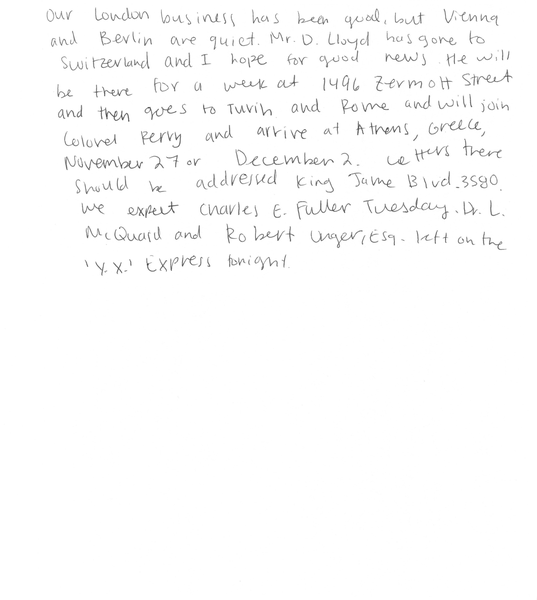 Our London business has been good, but Vienna
and Berlin are quiet. Mr. D. Lloyd has gone to
Switzerland and I hope for good news. He will
be there for a week at 1496 Zermott Street
and then goes to Turin and Rome and will join
Colonel Berry and arrive at Athens, Greece,
November 27 or December 2. Letters there
should be addressed King Jame Blvd. 3580.
We expect Charles E. Fuller Tuesday. Dr. L.
McQuaid and Robert Unger, Esq. left on the
'Y.X.' Express tonight.